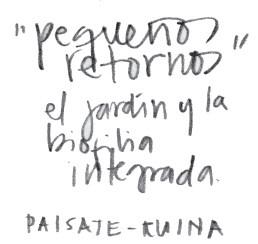 "pequeños
retornos"
el jardín y la
biofilia
integrada.
PAISAJE-RUINA